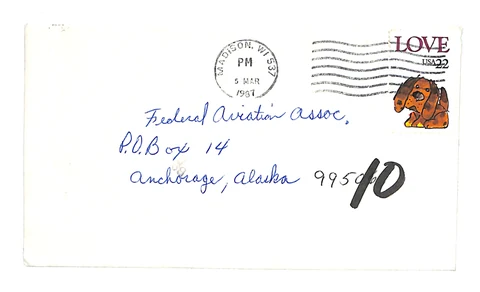 MADISON, WI 537
PM
5 MAR
1987
LOVE
USA22
Federal Aviation Assoc.
P.O.Box 14
Anchorage, Alaska 995
10